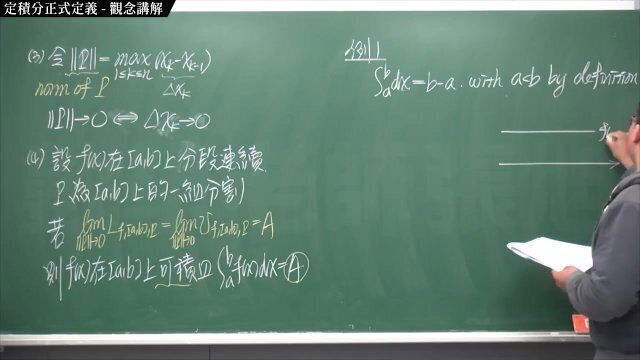 定積分正式定義 - 觀念講解
(3) 令 ||P|| = max 1≤k≤n (xₖ - xₖ₋₁)
norm of P Δxₖ
||P||→0 ⇔ Δxₖ→0
(4) 設 f(x) 在 [a,b] 上分段連續
P 為 [a,b] 上的一組分割
若 lim ||P||→0 L f,[a,b],P = lim ||P||→0 U f,[a,b],P = A
則 f(x) 在 [a,b] 上可積且 ∫ₐᵇ f(x)dx = A
例1
∫ₐᵇ dx = b-a. with a<b by definition